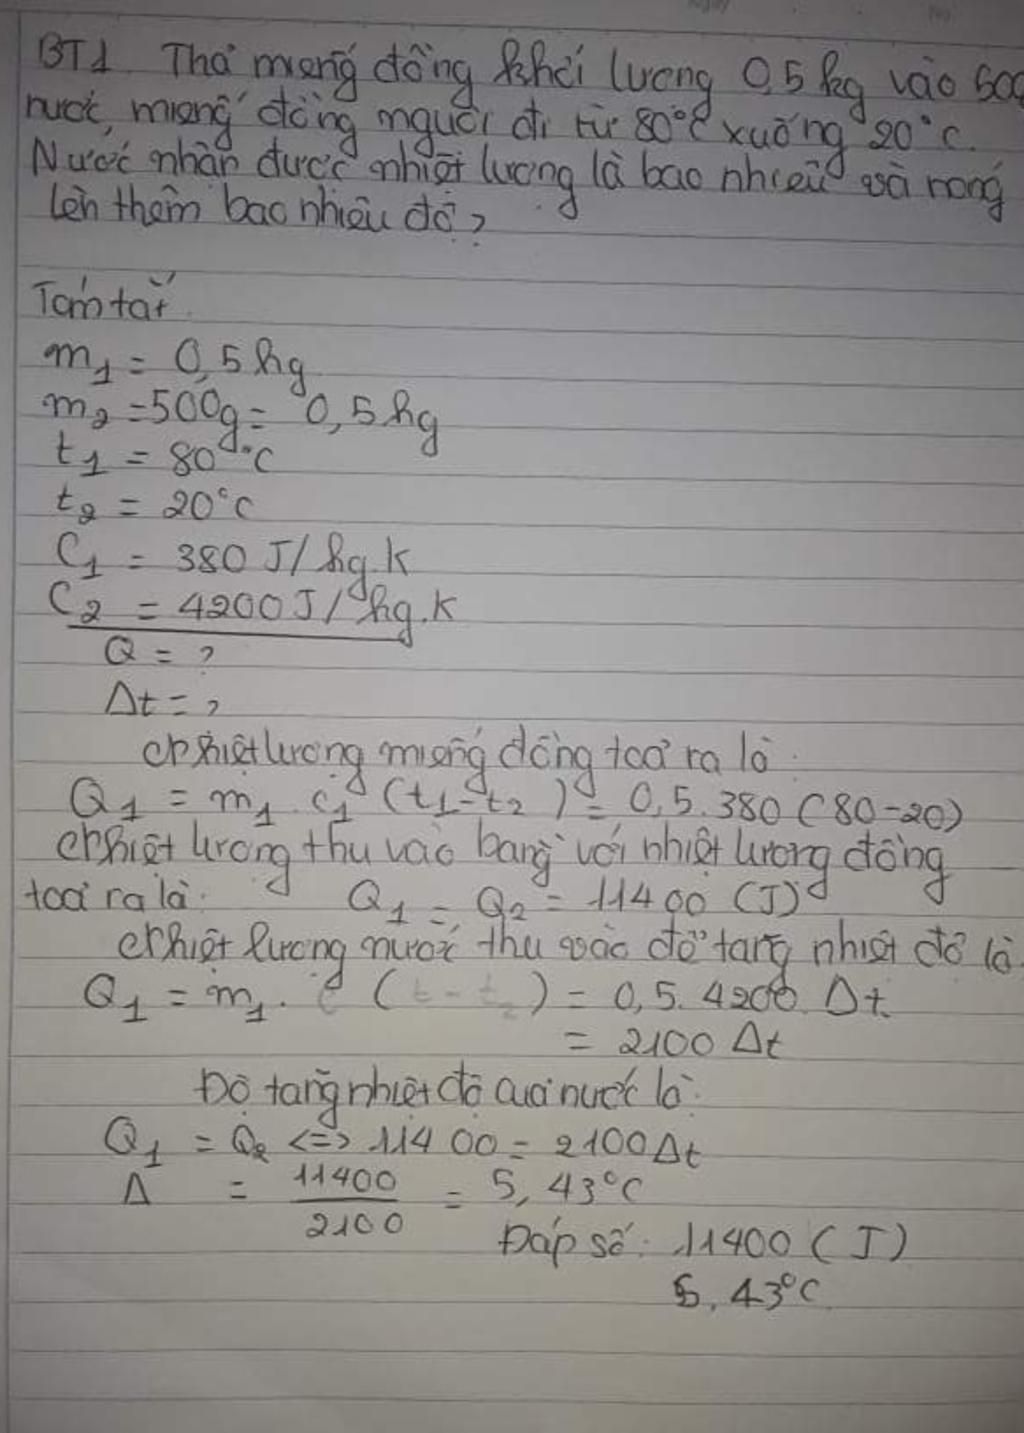 BT1 Thả miếng đồng khối lượng 0,5 kg vào 500
nước, miếng đồng nguội đi từ 80°C xuống 20°C.
Nước nhận được nhiệt lượng là bao nhiêu và nóng
lên thêm bao nhiêu độ?
Tóm tắt
m1 = 0,5 kg
m2 = 500g = 0,5 kg
t1 = 80°C
t2 = 20°C
C1 = 380 J/kg.K
C2 = 4200 J/kg.K
Q = ?
Δt = ?
Nhiệt lượng miếng đồng toả ra là:
Q1 = m1 . c1 (t1 - t2) = 0,5.380 (80-20)
Nhiệt lượng thu vào bằng với nhiệt lượng đồng
toả ra là: Q1 = Q2 = 11400 (J)
Nhiệt lượng nước thu vào để tăng nhiệt độ là
Q1 = m1. c (t - t2) = 0,5. 4200. Δt
= 2100 Δt
Độ tăng nhiệt độ của nước là:
Q1 = Q2 <=> 11400 = 2100 Δt
Δ = 11400 / 2100 = 5,43°C
Đáp số: 11400 (J)
5,43°C